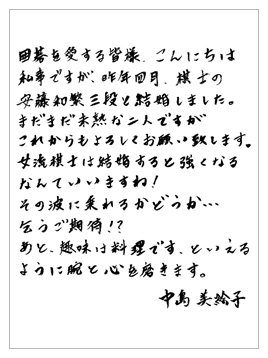 囲碁を愛する皆様、こんにちは
私事ですが、昨年四月、棋士の
安藤和繁三段と結婚しました。
まだまだ未熟な二人ですが
これからもよろしくお願い致します。
女流棋士は結婚すると強くなる
なんていいますね!
その波に乗れるかどうか…
乞うご期待!?
あと、趣味は料理です、といえる
ように腕と心を磨きます。
中島美絵子